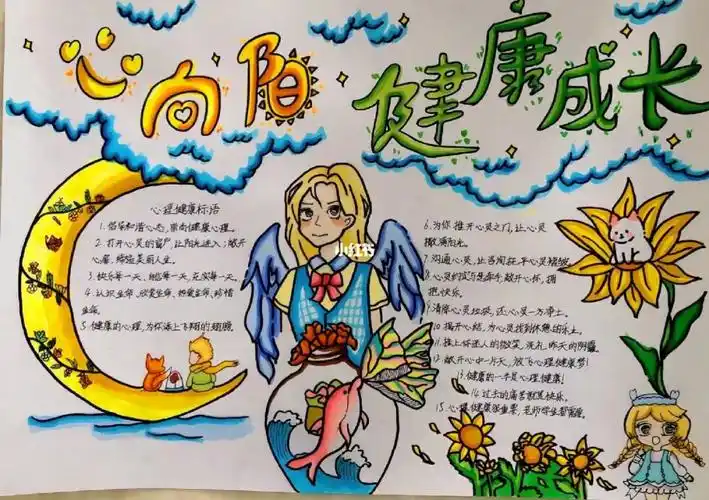 心向阳
健康成长
心理健康标语
1. 倡导和谐心态,崇尚健康心理。
2. 打开心灵的窗户,让阳光进入;敞开
心扉,缔造美丽人生。
3. 快乐每一天,健康每一天,充实每一天。
4. 认识生命、欣赏生命、热爱生命、珍惜
生命。
5. 健康的心理,为你添上飞翔的翅膀
6. 为你推开心灵之门,让心灵
撒满阳光。
7. 沟通心灵,让咨询在平心灵褶皱
8. 心灵的
敞开心怀,拥
抱快乐。
9. 清除心灵垃圾,还心灵一方净土。
10. 揭开心结,为心灵找到休憩的乐土。
11. 挂上你迷人的微笑,洗礼昨天的阴霾
12. 敞开心中一片天,放飞心理健康梦!
13. 健康的一半是心理健康!
14. 过去的痛苦就是快乐。
15. 心理健康很重要,老师学生都需要。
小红书